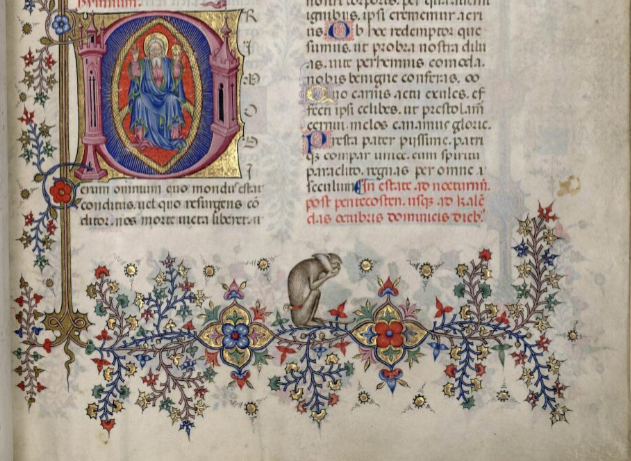 R
I
M
O
D
I
erum omnium quo mundus extat
conditus. vel quo resurgens cō
ditor. nos morte victa liberet.
ignibus. ipsi crememur acri
us. Ob hoc redemptor que
sumus. ut probra nostra dilu
as. vite perhennis comoda.
nobis benigne conferas.
Quo carnis actu exules. ef
fecti ipsi celibes. ut prestolam
cernui. melos canamus glorie.
Presta pater piissime. patri
qȝ compar unice. cum spiritu
paraclito. regnas per omne
seculum In estate ad nocturnum
post pentecosten. usqȝ ad kalē
das octubris dominicis dieb